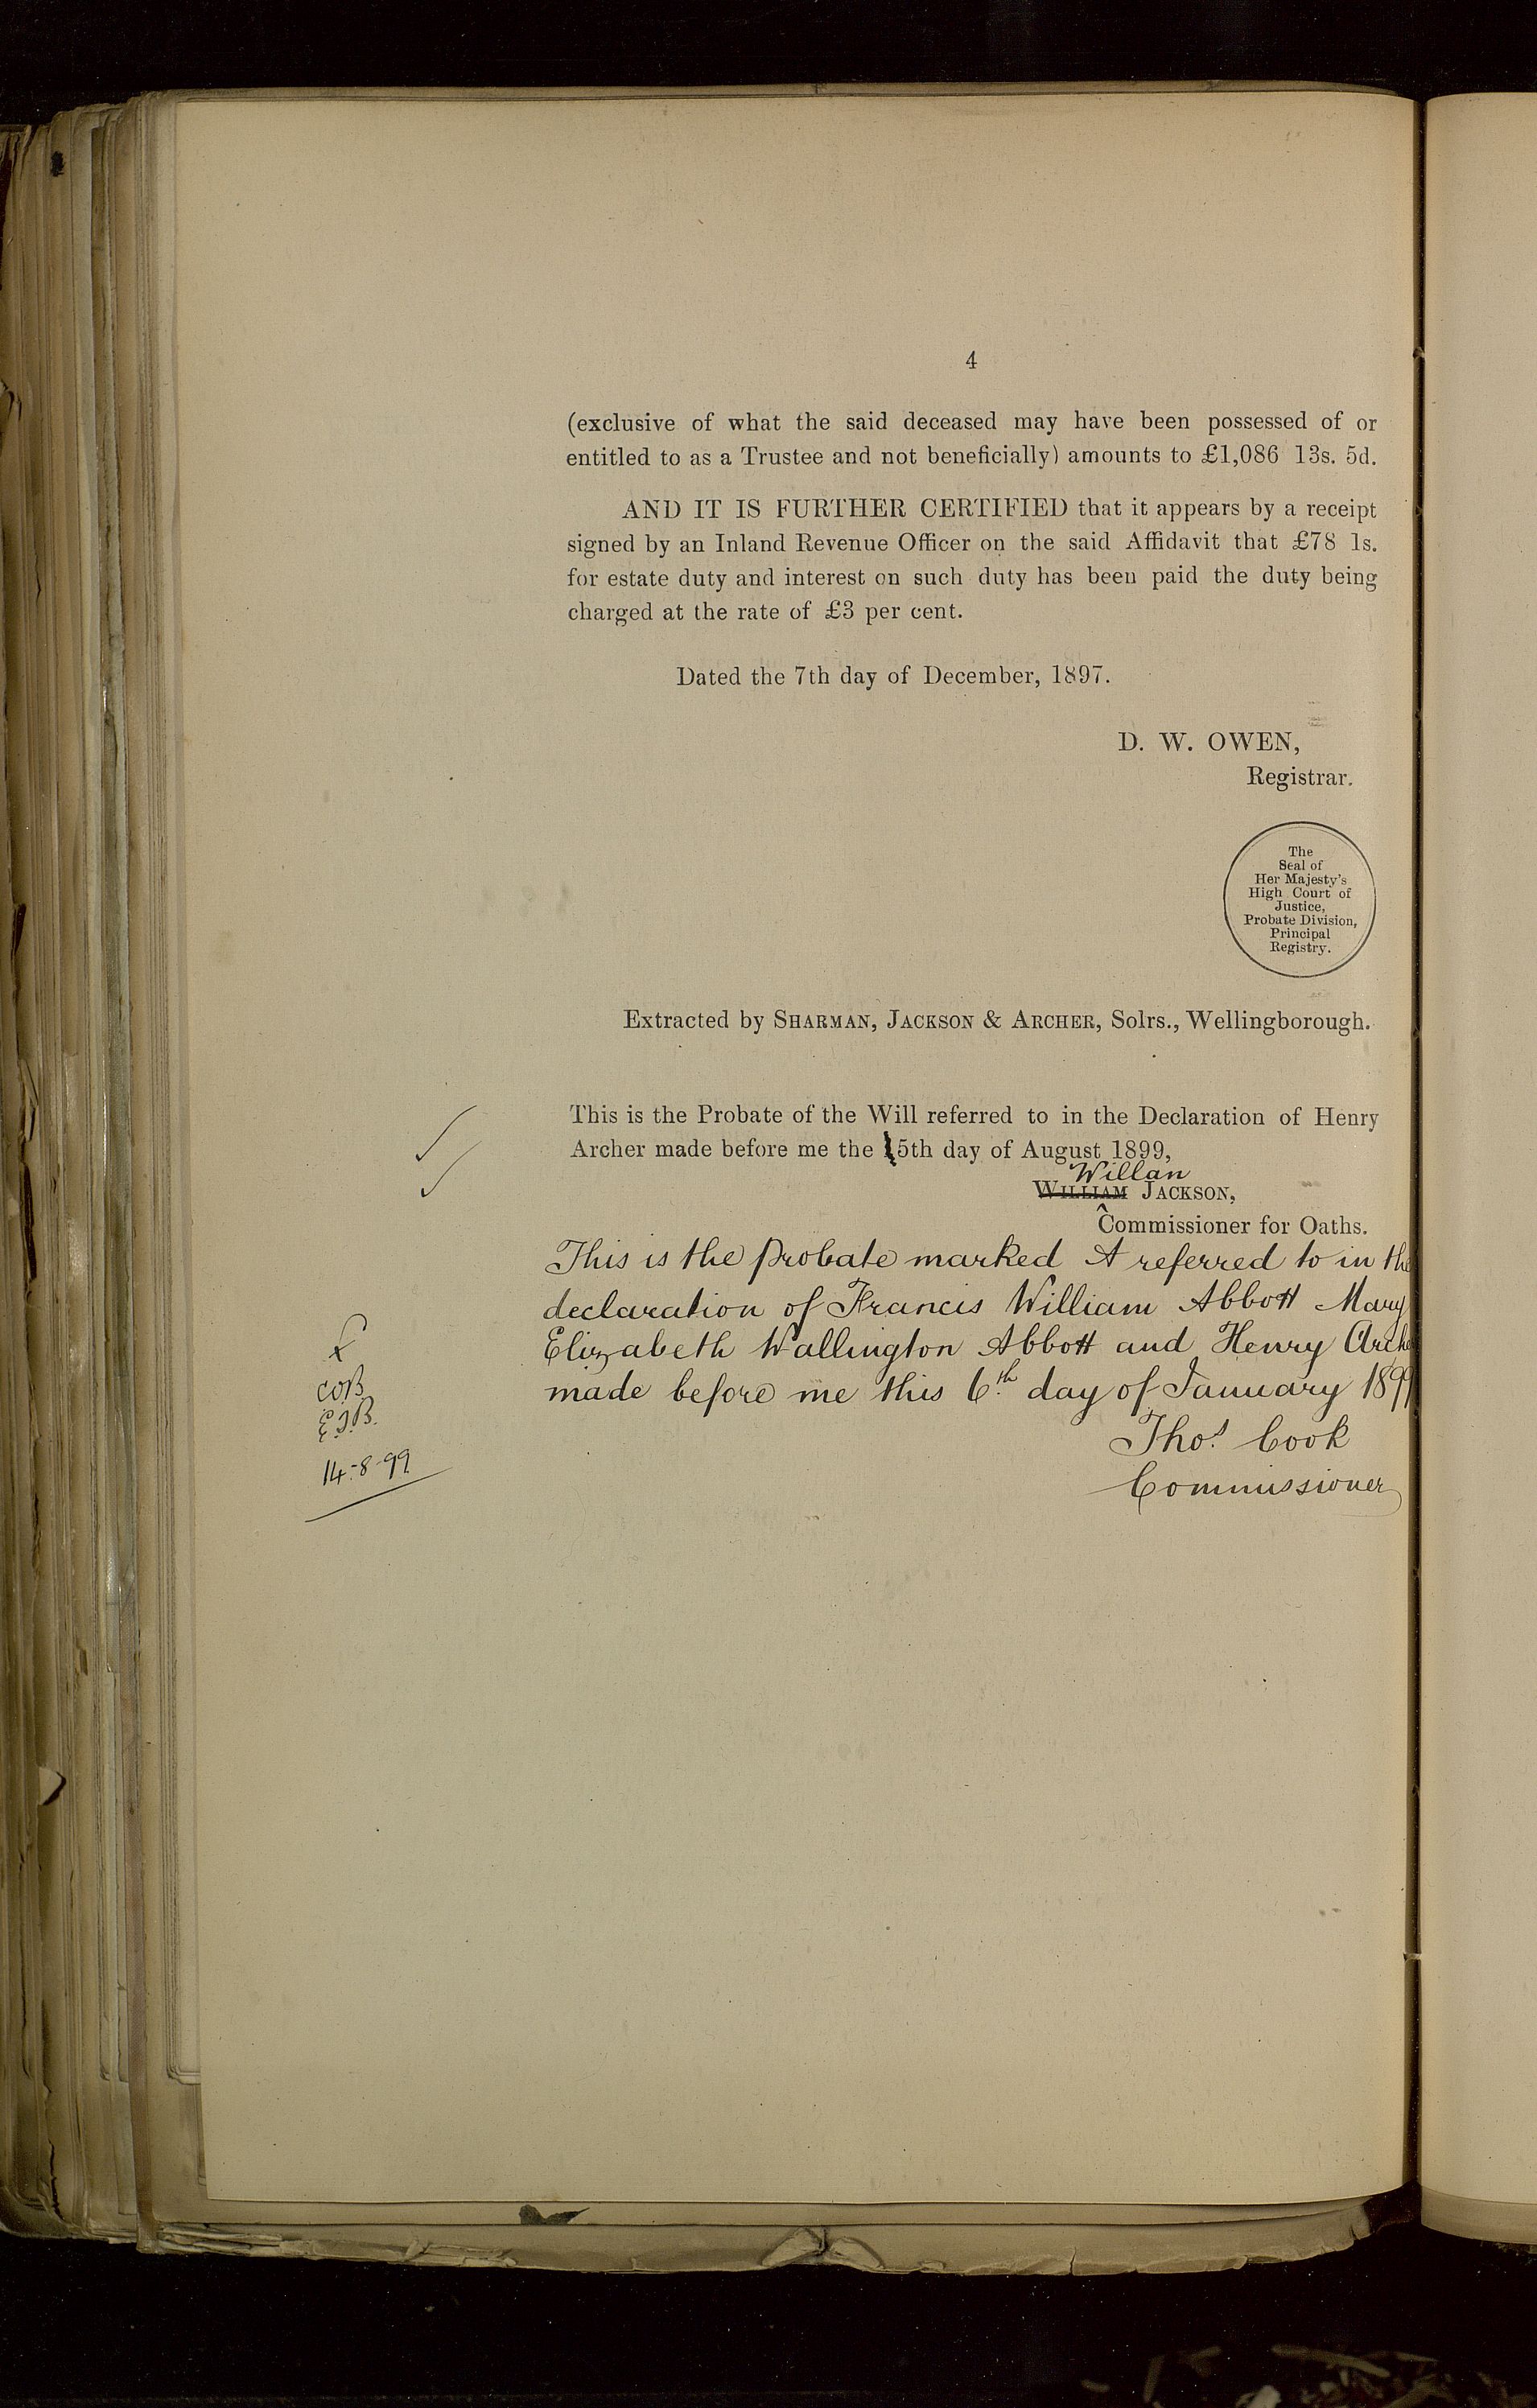 4
(exclusive of what the said deceased may have been possessed of or
entitled to as a Trustee and not beneficially) amounts to £1,086 13s. 5d.
AND IT IS FURTHER CERTIFIED that it appears by a receipt
signed by an Inland Revenue Officer on the said Affidavit that £78 1s.
for estate duty and interest on such duty has been paid the duty being
charged at the rate of £3 per cent.
Dated the 7th day of December, 1897.
D. W. OWEN,
Registrar.
The
Seal of
Her Majesty's
High Court of
Justice,
Probate Division,
Principal
Registry.
Extracted by SHARMAN, JACKSON & ARCHER, Solrs., Wellingborough.
This is the Probate of the Will referred to in the Declaration of Henry
Archer made before me the 5th day of August 1899,
Willan
WILLIAM JACKSON,
Commissioner for Oaths.
This is the Probate marked A referred to in the
declaration of Francis William Abbott Mary
Elizabeth Wallington Abbott and Henry Arche
made before me this 6th day of January 189
Thos. Cook
Commissioner
COB
E.J.B.
14-8-99